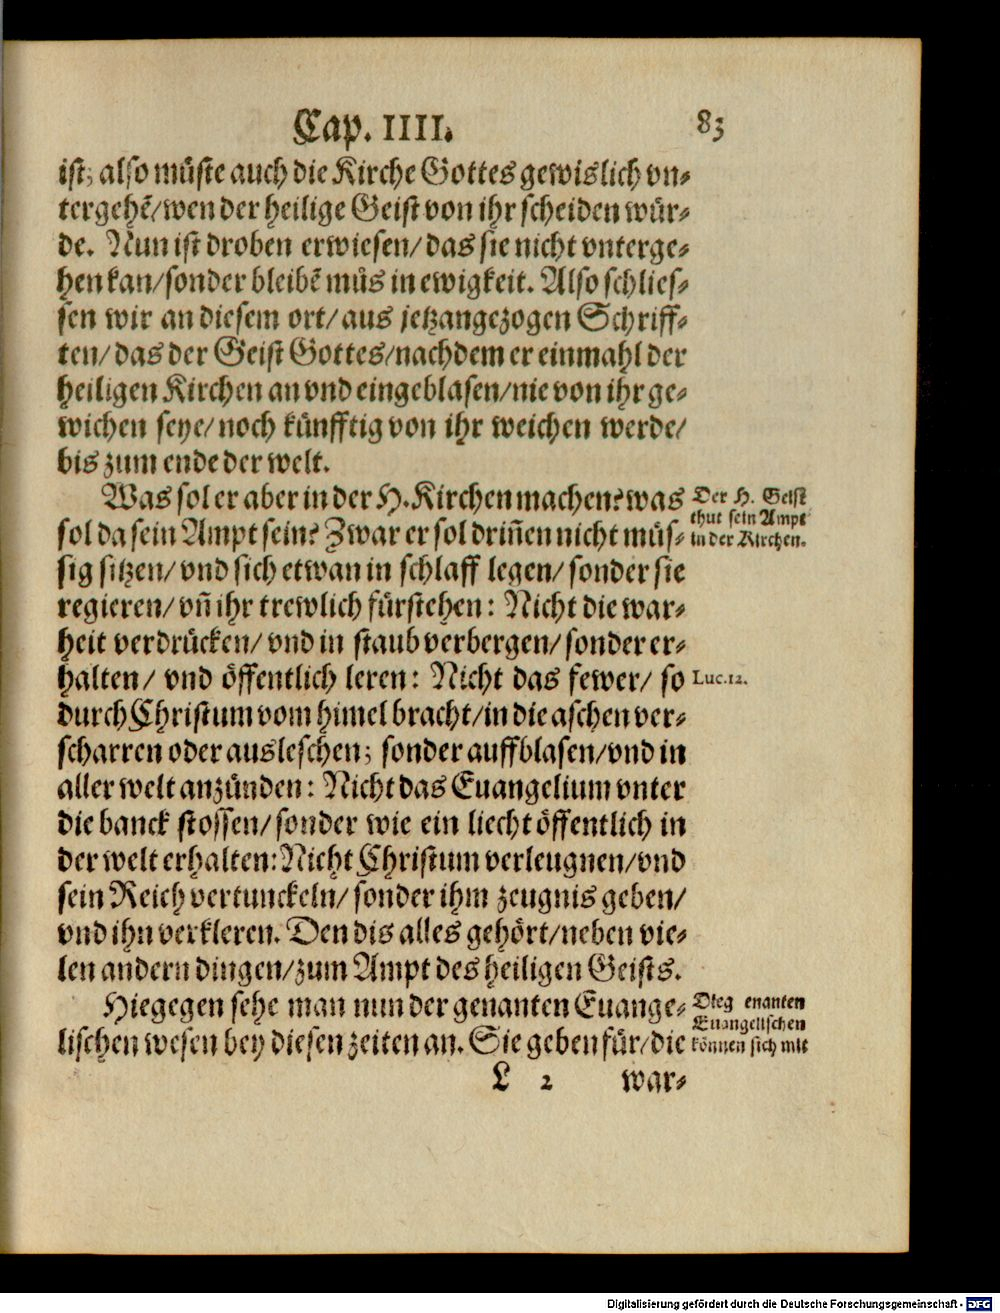 Cap. IIII. 83
ist; also müste auch die Kirche Gottes gewislich vn⸗
tergehẽ/wen der heilige Geist von ihr scheiden wür⸗
de. Nun ist droben erwiesen/das sie nicht vnterge⸗
hen kan/sonder bleibẽ müs in ewigkeit. Also schlies⸗
sen wir an diesem ort/aus jetzangezogen Schriff⸗
ten/das der Geist Gottes/nachdem er einmahl der
heiligen Kirchen an vnd eingeblasen/nie von ihr ge⸗
wichen seye/noch künfftig von ihr weichen werde/
bis zum ende der welt.
Was sol er aber in der H. Kirchen machen? was
Der H. Geist
thut sein Ampt
in der Kirchen.
sol da sein Ampt sein? Zwar er sol driñen nicht müs⸗
sig sitzen/vnd sich etwan in schlaff legen/sonder sie
regieren/vñ ihr trewlich fürstehen: Nicht die war⸗
heit verdrücken/vnd in staub verbergen/sonder er⸗
halten/vnd öffentlich leren: Nicht das fewer/so
Luc.12.
durch Christum vom himel bracht/in die aschen ver⸗
scharren oder ausleschen; sonder auffblasen/vnd in
aller welt anzünden: Nicht das Euangelium vnter
die banck stossen/sonder wie ein liecht öffentlich in
der welt erhalten: Nicht Christum verleugnen/vnd
sein Reich vertunckeln/sonder ihm zeugnis geben/
vnd ihn verkleren. Den dis alles gehört/neben vie⸗
len andern dingen/zum Ampt des heiligen Geists.
Hiegegen sehe man nun der genanten Euange⸗
Die genanten
Euangelischen
können sich mit
lischen wesen bey diesen zeiten an. Sie geben für/die
L 2 war⸗
Digitalisierung gefördert durch die Deutsche Forschungsgemeinschaft - DFG